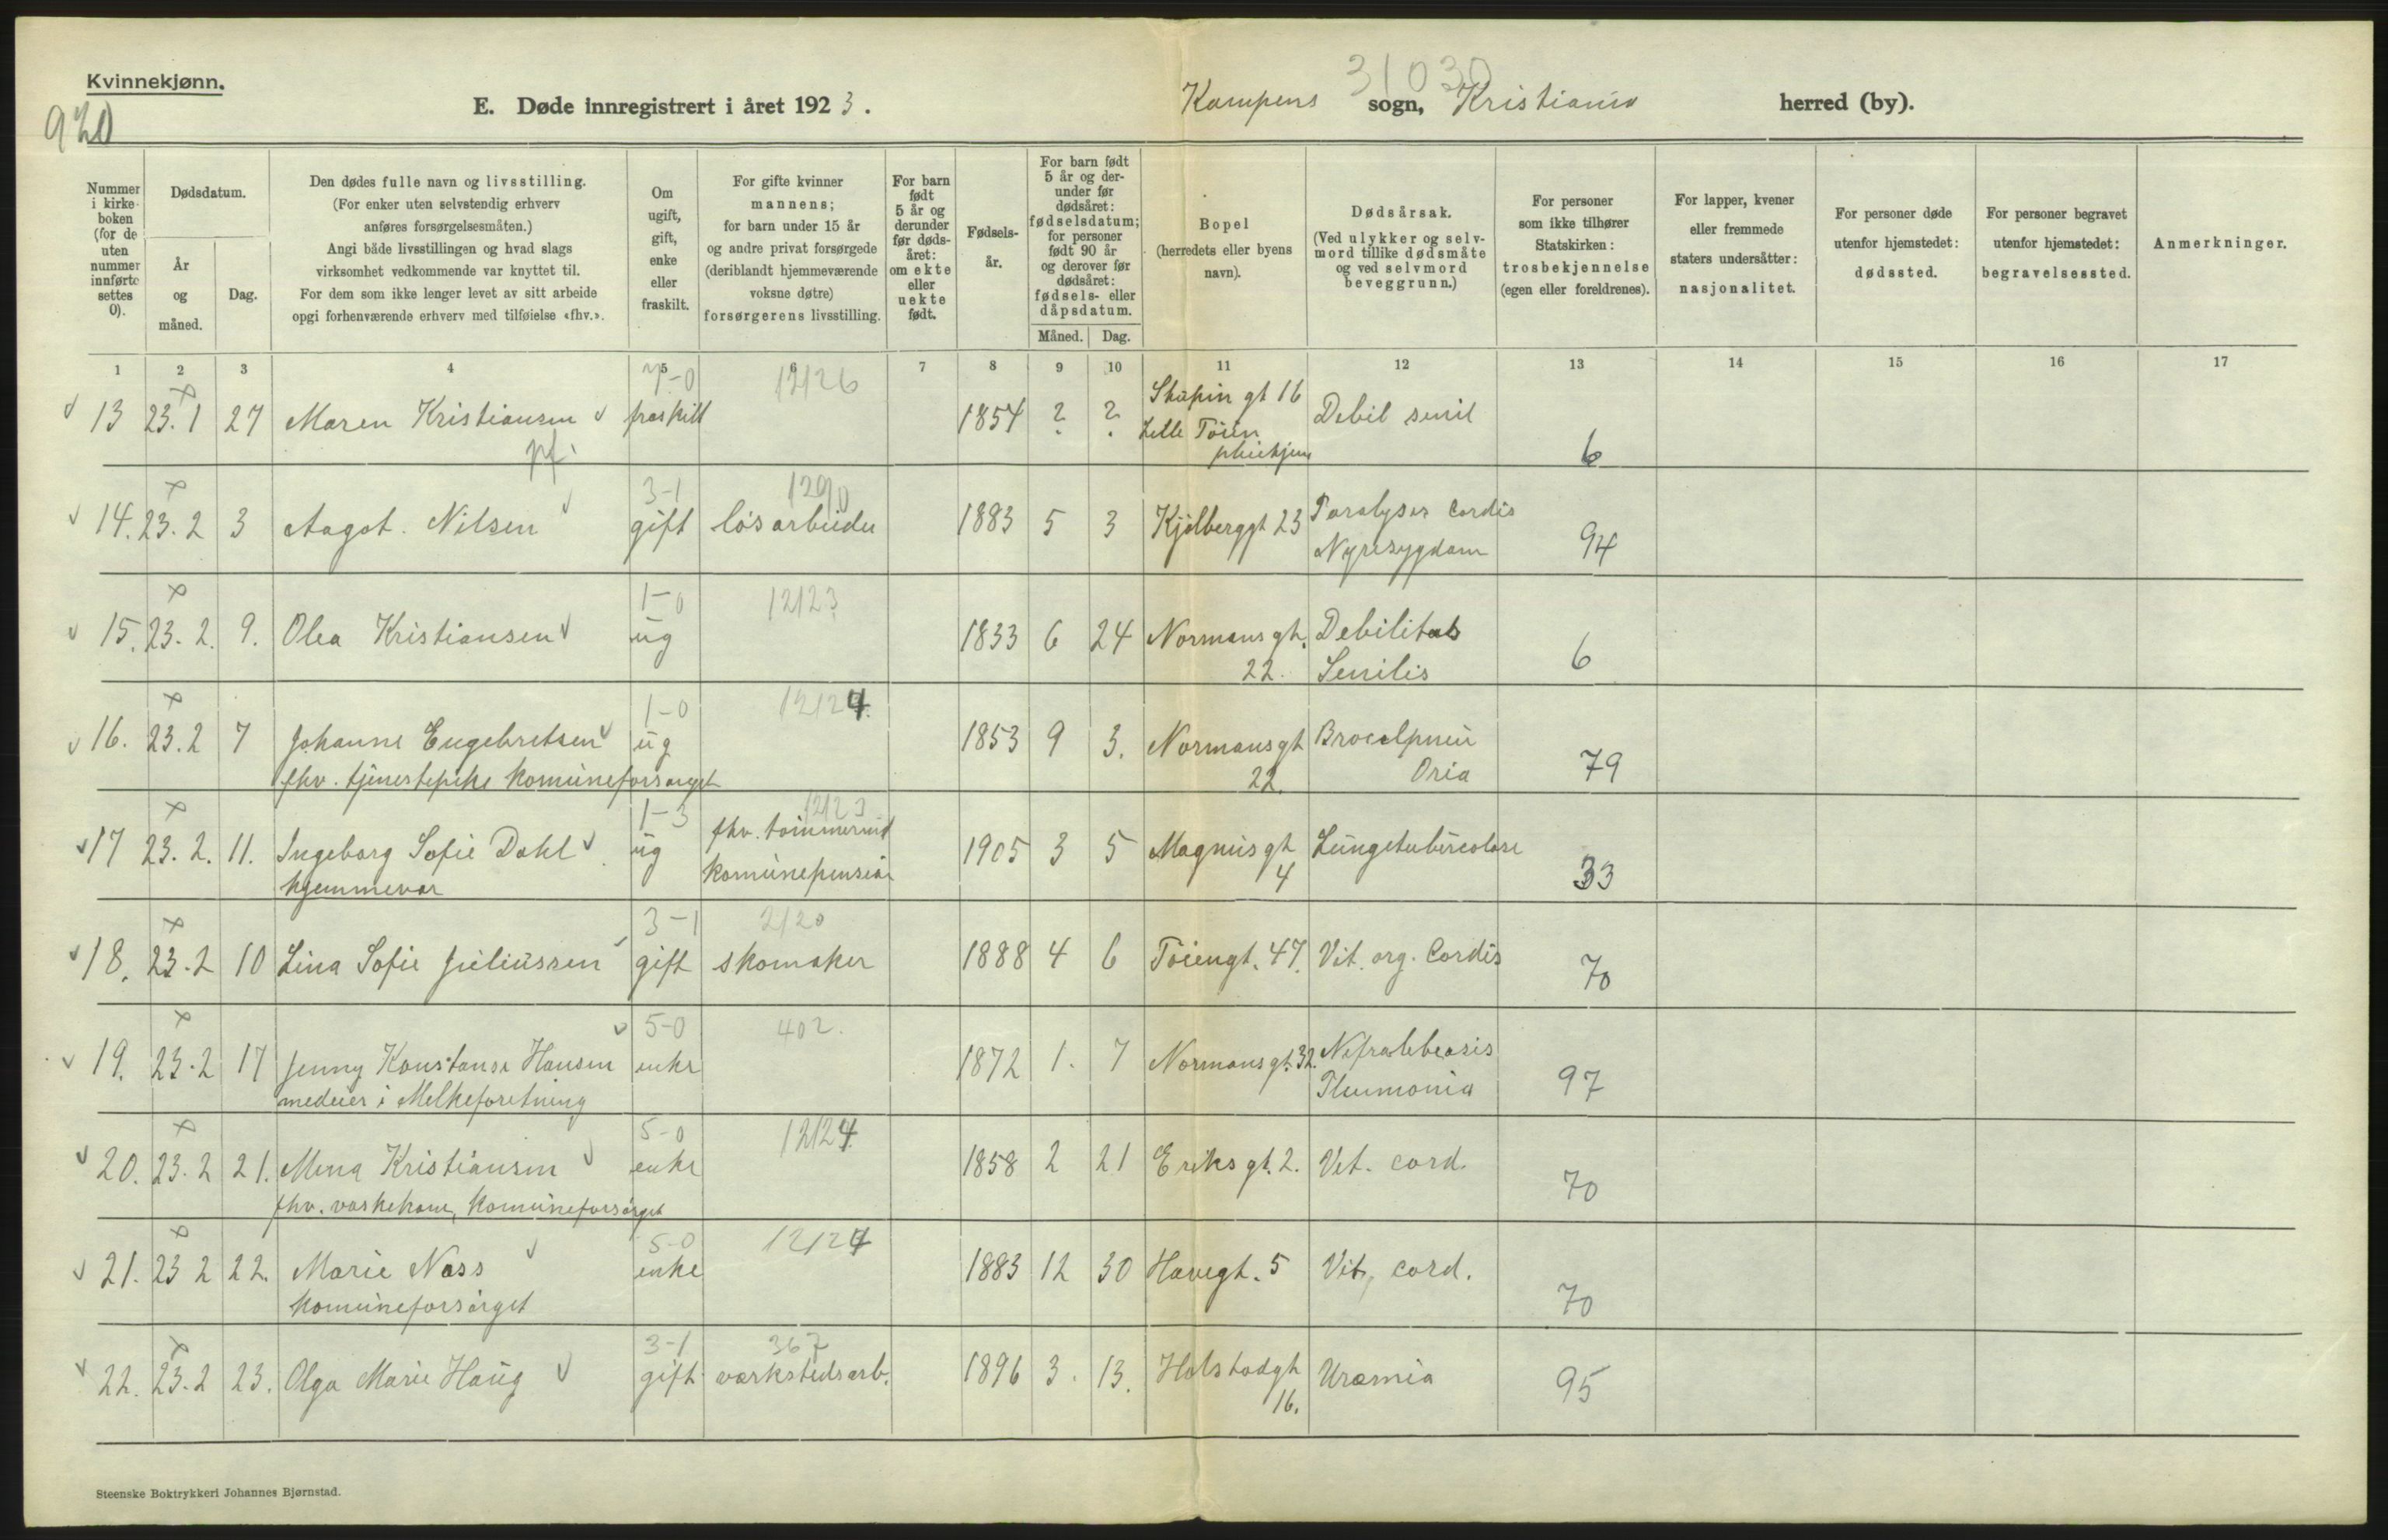 Kvinnekjønn.
920
31030
E. Døde innregistrert i året 1923. Kampens sogn, Kristiania herred (by).
Nummer i kirkeboken (for de uten nummer innførte settes 0).
Dødsdatum.
År og måned.
Dag.
Den dødes fulle navn og livsstilling.
(For enker uten selvstendig erhverv anføres forsørgelsesmåten.)
Angi både livsstillingen og hvad slags virksomhet vedkommende var knyttet til.
For dem som ikke lenger levet av sitt arbeide opgi forhenværende erhverv med tilføielse «fhv.».
Om ugift, gift, enke eller fraskilt.
For gifte kvinner mannens; for barn under 15 år og andre privat forsørgede (deriblandt hjemmeværende voksne døtre) forsørgerens livsstilling.
For barn født 5 år og derunder før dødsåret: om ekte eller uekte født.
Fødselsår.
For barn født 5 år og derunder før dødsåret: fødselsdatum; for personer født 90 år og derover før dødsåret: fødsels- eller dåpsdatum.
Måned. Dag.
Bopel (herredets eller byens navn).
Dødsårsak.
(Ved ulykker og selvmord tillike dødsmåte og ved selvmord beveggrunn.)
For personer som ikke tilhører Statskirken: trosbekjennelse (egen eller foreldrenes).
For lapper, kvener eller fremmede staters undersåtter: nasjonalitet.
For personer døde utenfor hjemstedet: dødssted.
For personer begravet utenfor hjemstedet: begravelsessted.
Anmerkninger.
1 2 3 4 5 6 7 8 9 10 11 12 13 14 15 16 17
7-0 12126
13 23.1 27 Maren Kristiansen fraskilt 1854 ? ? gt 16 Debil senil 6
Lille Tøien
pleiehjem
3-1 1290
14. 23.2 3 Aagot Nilsen gift løsarbeider 1883 5 3 Kjølberggt 23 Paralyses Cordis 94
Nyresygdom
1-0 12123
15. 23.2. 9. Olea Kristiansen ug 1833 6 24 Normansgt. Debilitas 6
22. Senilis
1-0 12124
16. 23.2 7 Johanne Engebretsen ug 1853 9 3. Normansgt 79
fhv. tjenestepike komuneforsørget 22. Oria
1-3 12123
17 23.2. 11. Ingeborg Sofie Dahl ug fhv. tømmermd 1905 3 5 Magnusgt Lungetuberculose 33
hjemmevær komunepensiar 4
3-1 2120
18. 23.2 10 Lina Sofie Juliussen gift skomaker 1888 4 6 Tøiengt. 47. Vit. org. Cordis 70
5-0 402.
19. 23.2 17 Jenny Konstanse Hansen enke 1872 1. 7 Normansgt. 32. 97
medeier i Melkeforetning
5-0 12124
20. 23.2 21. Mina Kristiansen enke 1858 2 21 Eriksgt. 2. Vit. cord. 70
fhv. vaskekone, komuneforsørget
5-0 12124
21. 23 2 22. Marie Næss enke 1883 12 30 Havegt. 5 Vit. cord. 70
komuneforsørget
3-1 367
22. 23.2 23. Olga Marie Haug gift verkstedsarb. 1896 3. 13. Holstadgt Uræmia 95
16.
Steenske Boktrykkeri Johannes Bjørnstad.